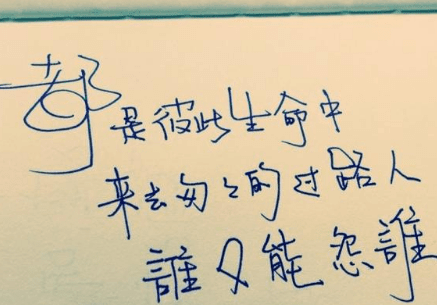 都是彼此生命中
来去匆匆的过路人
誰又能怨誰